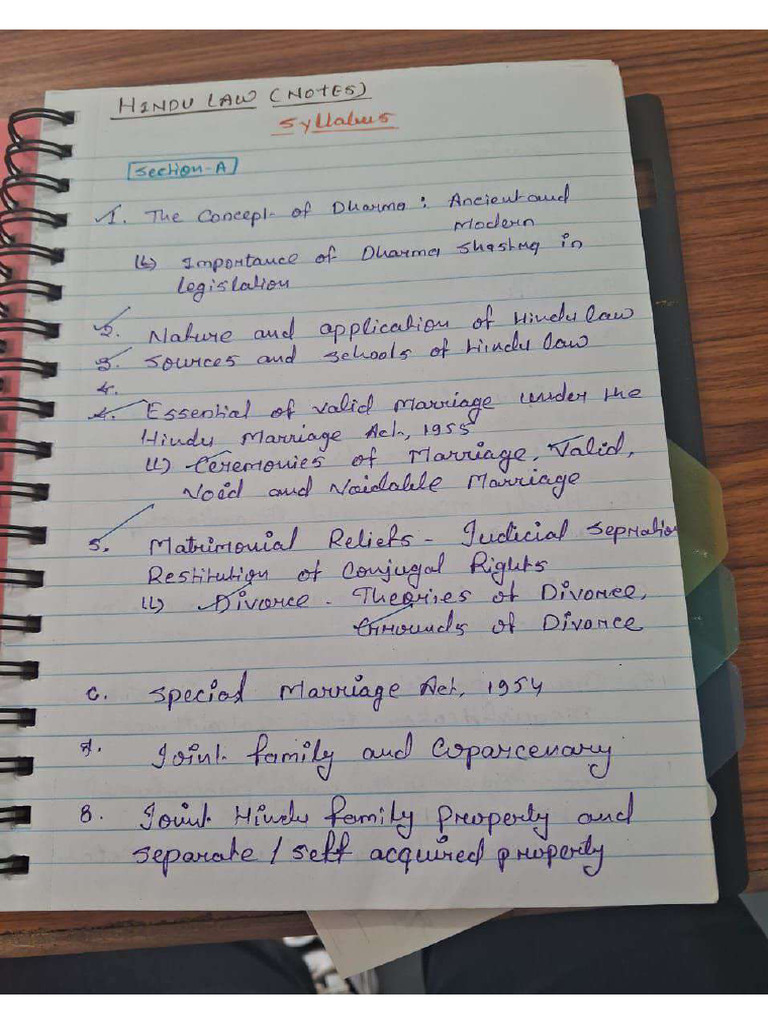 HINDU LAW (NOTES)
Syllabus
Section-A
1. The Concept of Dharma : Ancient and
Modern
(b) Importance of Dharma Shastra in
legislation
2. Nature and application of Hindu law
3. Sources and schools of Hindu law
4.
4. Essential of valid Marriage under the
Hindu Marriage Act, 1955
(b) Ceremonies of Marriage, Valid,
Void and Voidable Marriage
5. Matrimonial Reliefs - Judicial Sepration
Restitution of Conjugal Rights
(b) Divorce - Theories of Divorce,
Grounds of Divorce
6. Special Marriage Act, 1954
7. Joint family and Coparcenary
8. Joint Hindu family Property and
separate / self acquired property